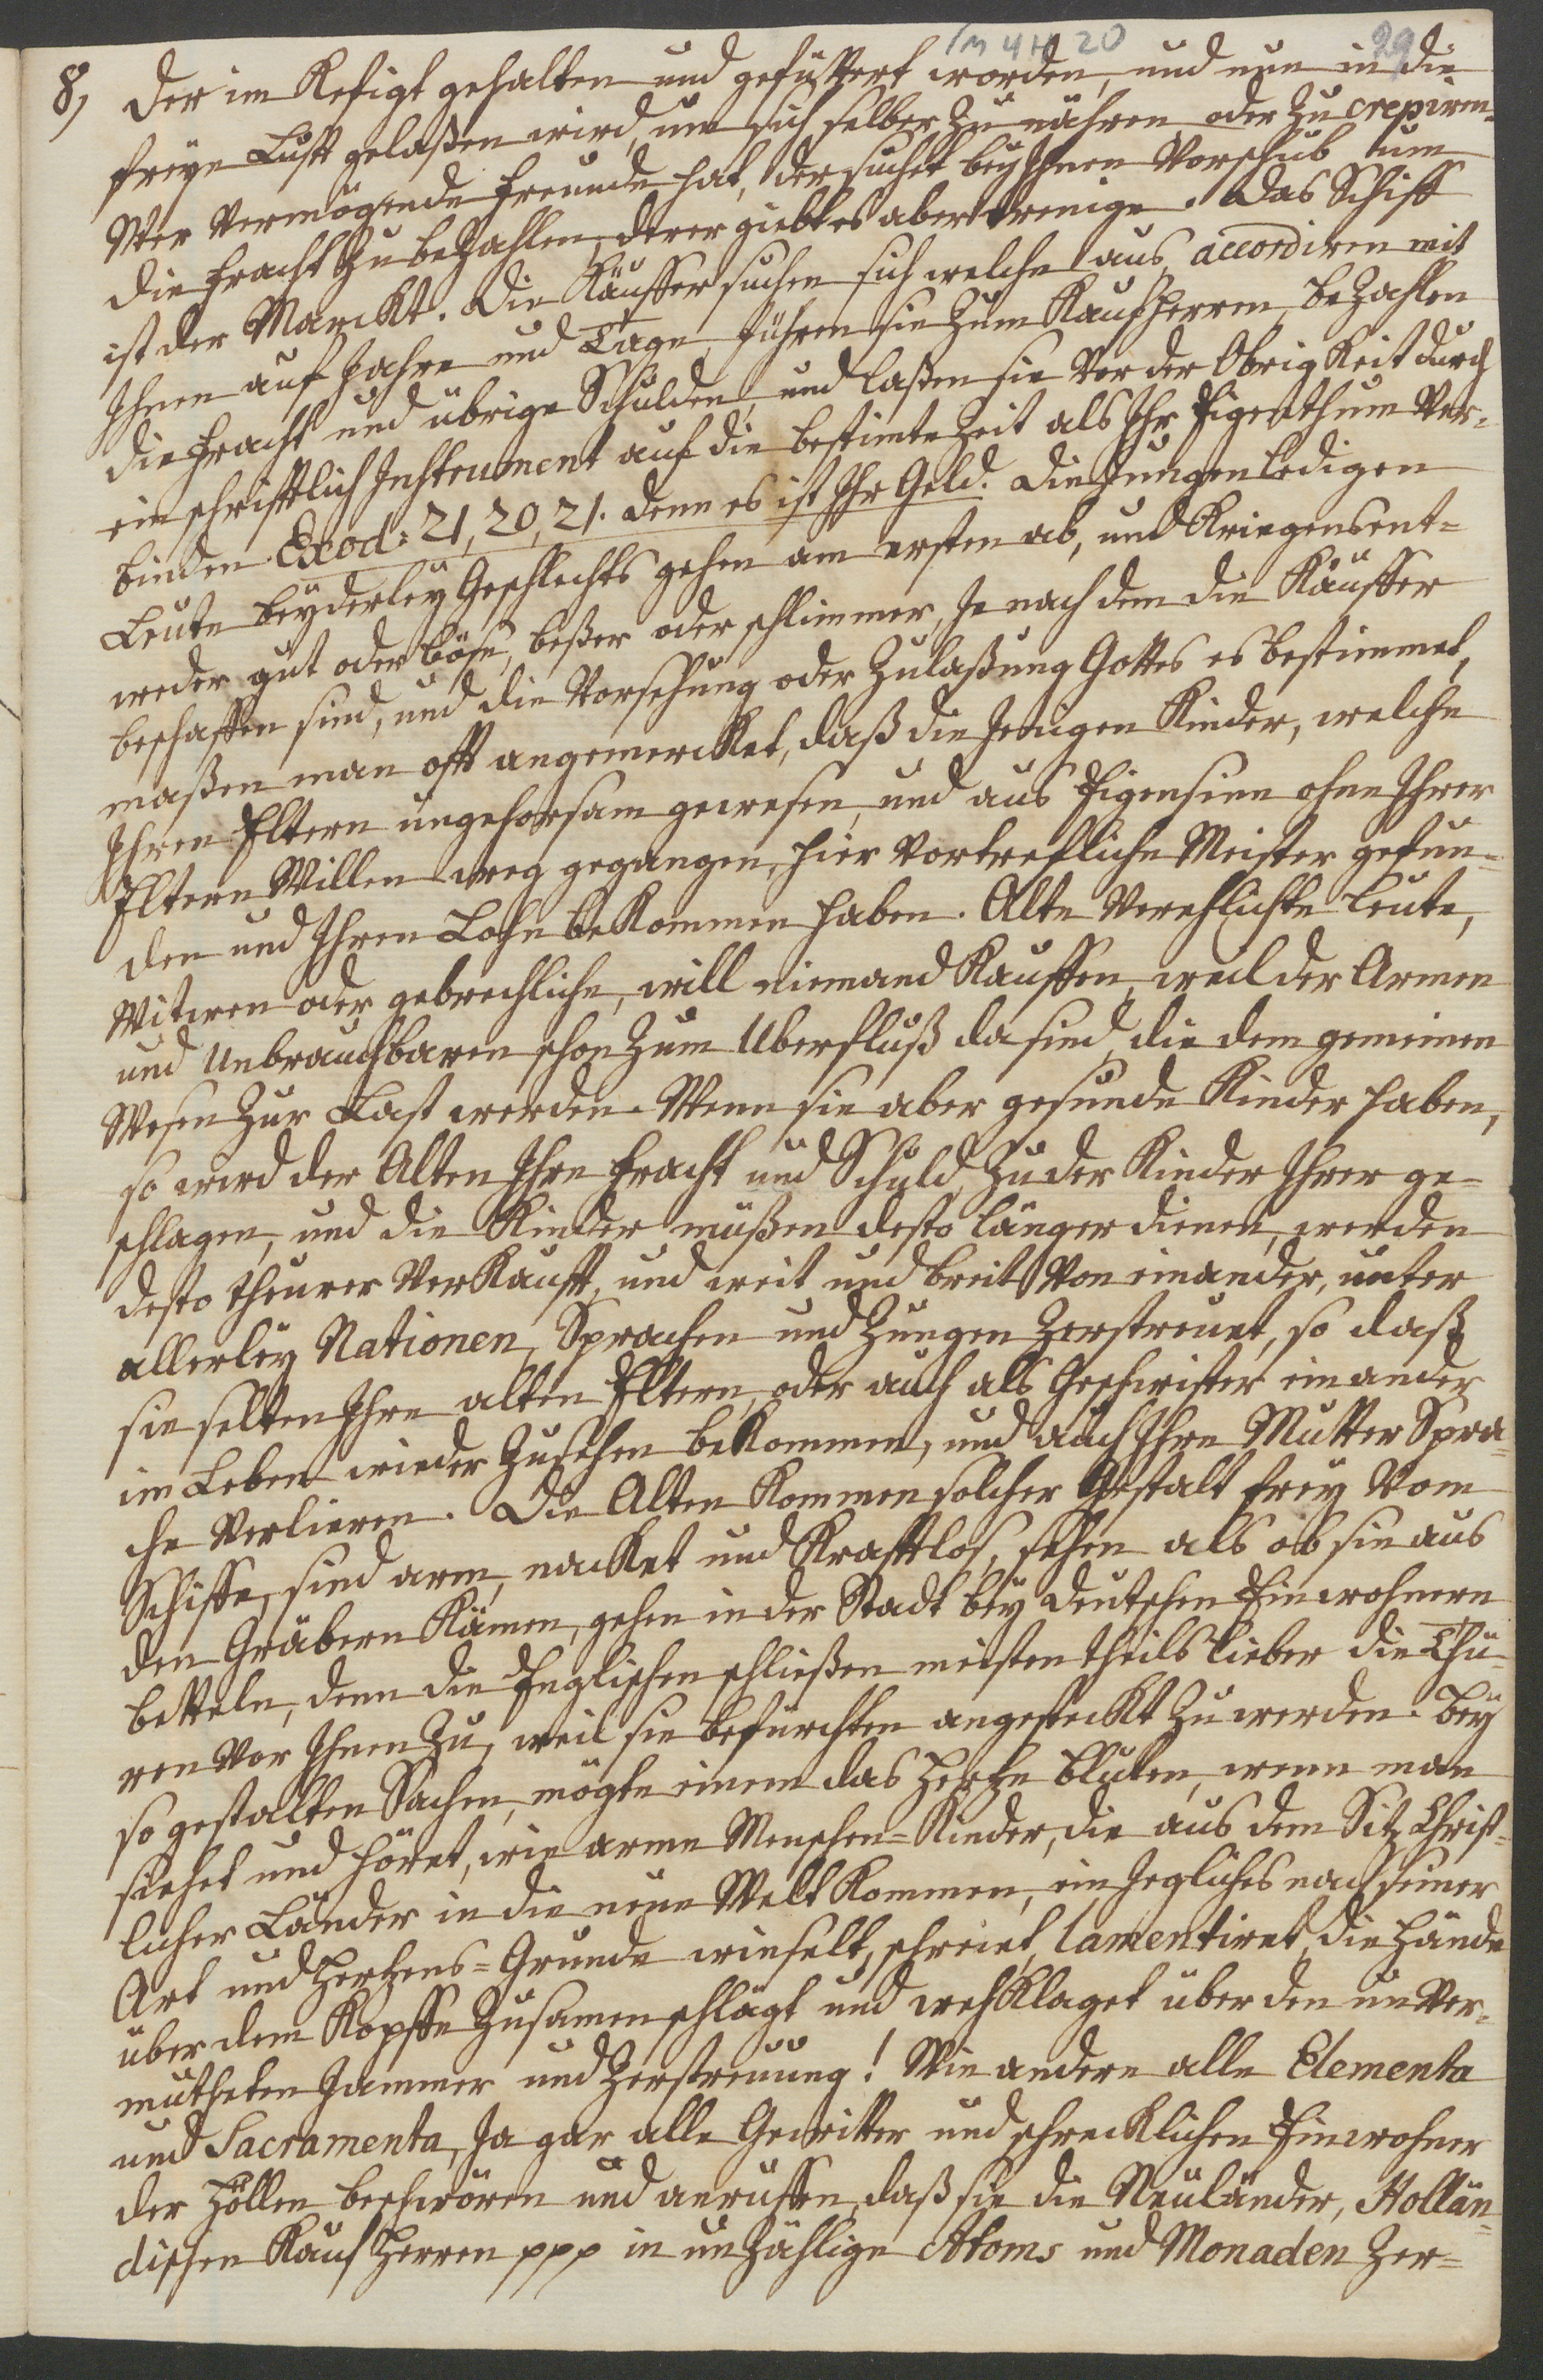 /M 4 H 20 29
8, der im Kefigt gehalten und gefüttert worden, und nun in die
freye Lufft gelaßen wird, um sich selber zu nähren oder zu crepiren.
Wer vermögende Freunde hat, der suchet bey Ihnen Vorschub um
die Fracht zu bezahlen, derer giebt es aber wenige. Das Schiff
ist der Marckt. Die Käuffer suchen sich welche aus, accordiren mit
Ihnen auf Jahre und Tage, führen sie zum Kaufherren, bezahlen
die Fracht und übrige Schulden, und laßen sie vor der Obrigkeit durch
ein schrifftlich Instrument auf die bestimte Zeit als Ihr Eigenthum ver-
binden Exod: 21, 20, 21. denn es ist Ihr Geld. Die jungen ledigen
Leute beyderley Geschlechts gehen am ersten ab, und kriegens ent-
weder gut oder böse, beßer oder schlimmer, je nach dem die Käuffer
beschaffen sind, und die Vorsehung oder Zulaßung Gottes es bestimmet,
maßen man offt angemercket, daß diejenigen Kinder, welche
Ihren Eltern ungehorsam gewesen, und aus Eigensinn ohne Ihrer
Eltern Willen weg gegangen, hier vortrefliche Meister gefun-
den und Ihren Lohn bekommen haben. Alte verehlichte Leute,
Witwen oder gebrechliche, will niemand kauffen, weil der Armen
und Unbrauchbaren schon zum Uberfluß da sind, die dem gemeinen
Wesen zur Last werden. Wenn sie aber gesunde Kinder haben,
so wird der Alten Ihre Fracht und Schuld zu der Kinder Ihrer ge-
schlagen, und die Kinder müßen desto länger dienen, werden
desto theurer verkaufft, und weit und breit von einander, unter
allerley Nationen, Sprachen und Zungen zerstreuet, so daß
sie selten Ihre alten Eltern, oder auch als Geschwister einander
im Leben wieder zusehen bekommen, und auch Ihre Mutter Spra-
che verlieren. Die Alten kommen solcher Gestalt frey vom
Schiffe, sind arm, nacket und krafftlos, sehen als ob sie aus
den Gräbern kämen, gehen in der Stadt bey deutschen Einwohnern
betteln, denn die Englischen schließen meisten theils lieber die Thü-
ren vor Ihnen zu, weil sie befürchten angesteckt zu werden. Bey
so gestalten Sachen, mögte einem das Hertze bluten, wenn man
siehet und höret, wie arme Menschen-Kinder, die aus dem Sitz Christ-
licher Länder in die neue Welt kommen, ein jegliches nach seiner
Art und Hertzens-Grunde winselt, schreiet, lamentiret, die Hände
über dem Kopffe zusamenschlägt und wehklaget über den unver-
mutheten Jammer und Zerstreuung! Wie andere alle Elementa
und Sacramenta, ja gar alle Gewitter und schrecklichen Einwohner
der Höllen beschwören und anruffen, daß sie die Neuländer, Hollän-
dischen Kauf Herren ppp in unzählige Atoms und Monaden zer-